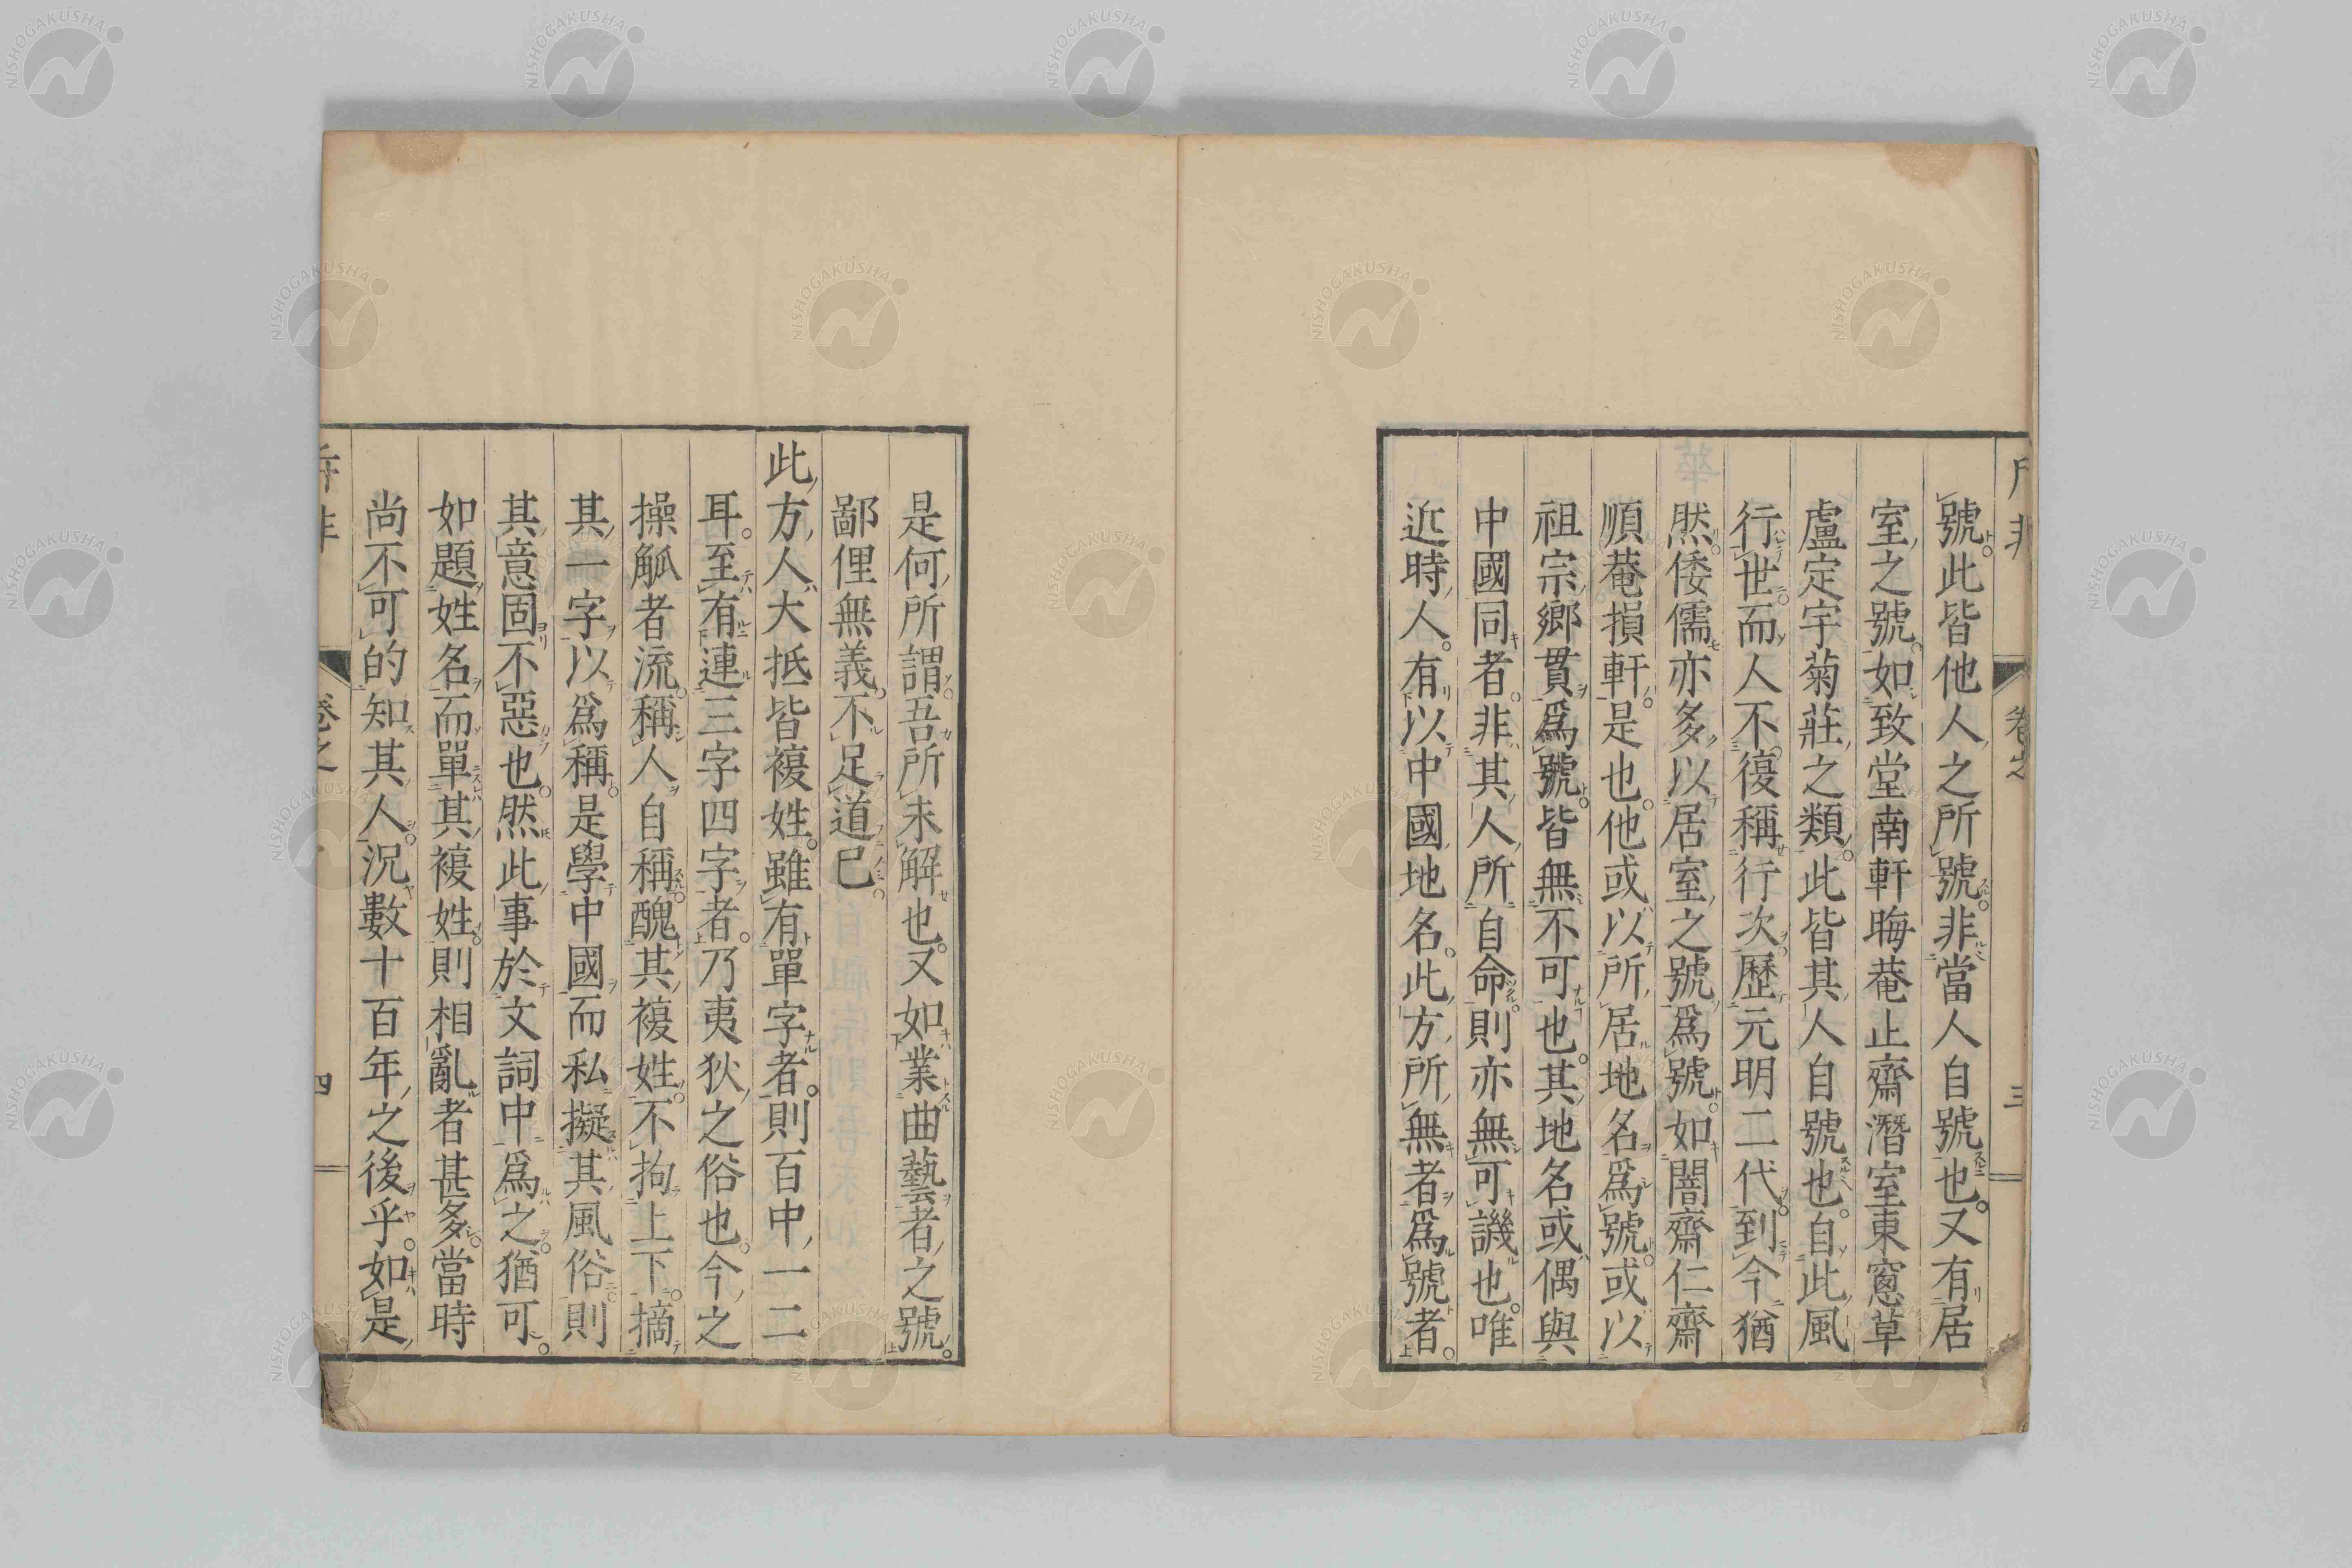 號此皆他人之所號。非當人自號也。又有居
室之號。如致堂南軒晦菴止齋潛室東窻草
盧定宇菊莊之類。此皆其人自號也。自此風
行世而人不復稱行次。歷元明二代。到今猶
然。倭儒亦多以居室之號爲號。如闇齋仁齋
順菴損軒。是也。他或以所居地名爲號。或以
祖宗鄉貫爲號。皆無不可也。其地名或偶與
中國同者。非其人所自命。則亦無可譏也。唯
近時人。有以中國地名。此方所無者爲號者。
三
是何所謂。吾所未解也。又如業曲藝者之號。
鄙俚無義。不足道已。
此方人大抵皆複姓。雖有單字者。則百中一二
耳。至有連三字四字者。乃夷狄之俗也。今之
操觚者流。稱人自稱。醜其複姓。不拘上下。摘
其一字以爲稱。是學中國而私擬其風俗。則
其意固不惡也。然此事於文詞中爲之。猶可。
如題姓名而單其複姓。則相亂者甚多。當時
尚不可的知其人。況數十百年之後乎。如是
卷之
四
NISHOGAKUSHA